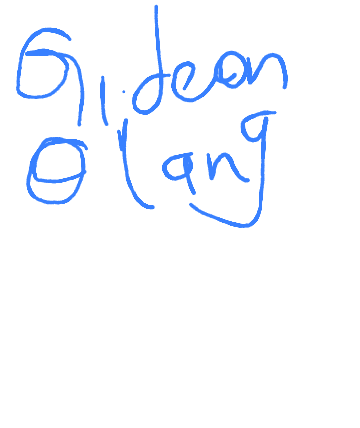 Gideon
Olang